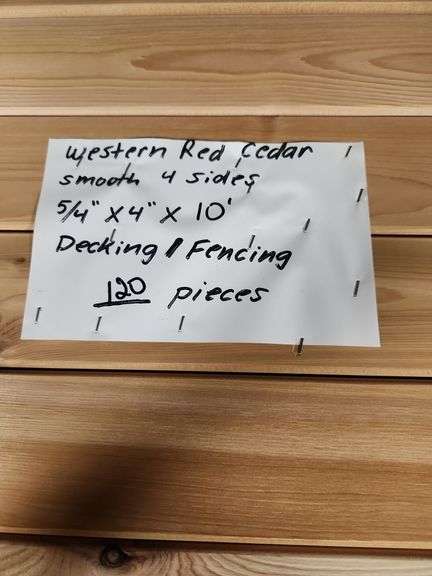 Western Red Cedar
smooth 4 sides
5/4" x 4" x 10'
Decking / Fencing
120 pieces